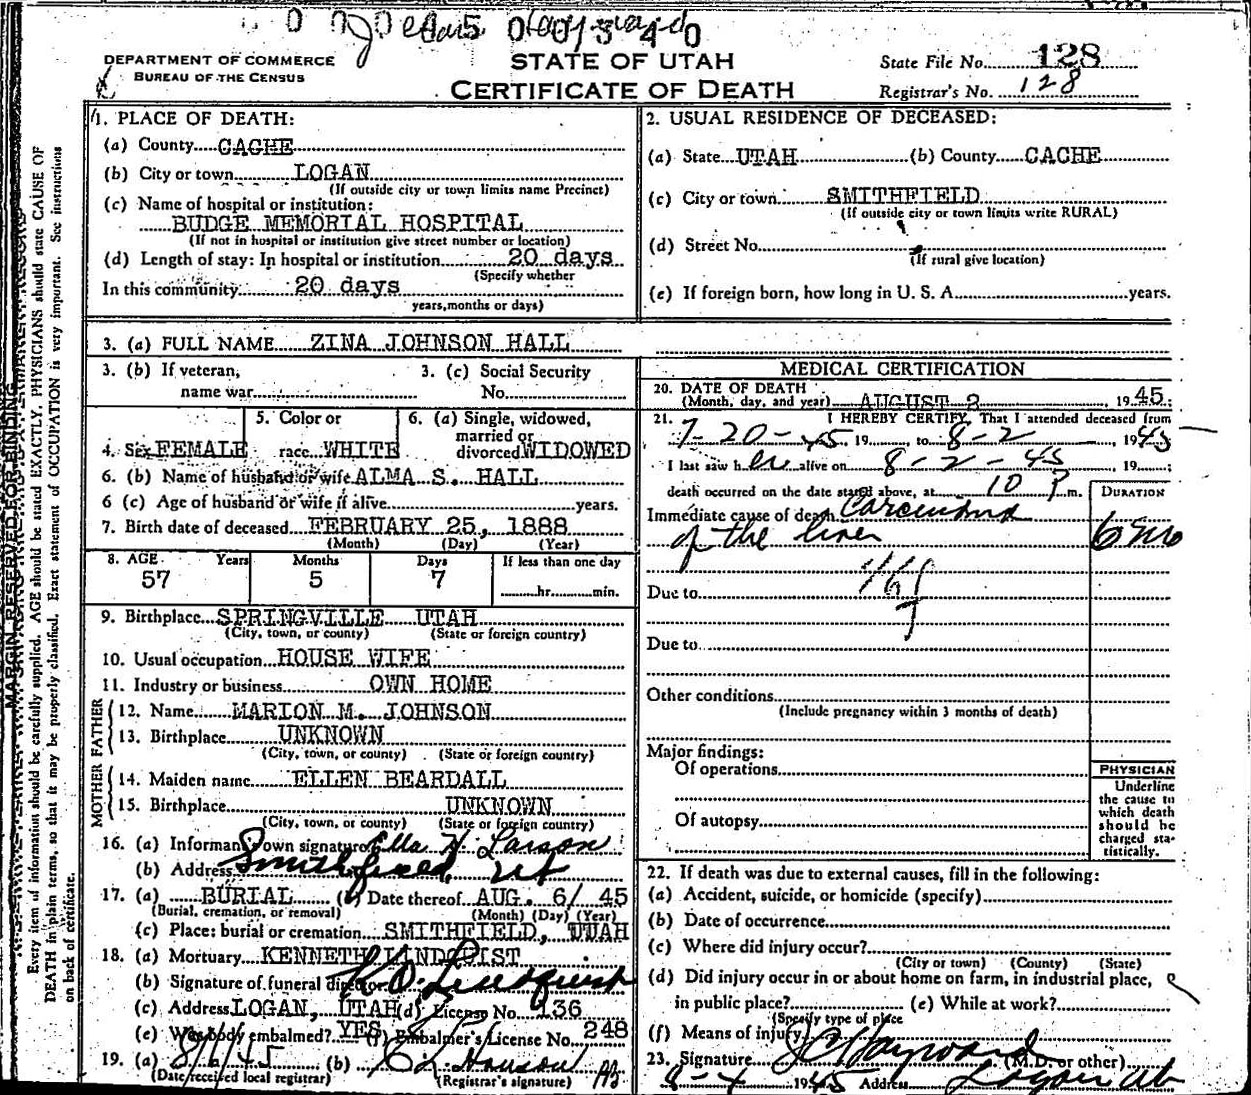 DEPARTMENT OF COMMERCE
BUREAU OF THE CENSUS
STATE OF UTAH
CERTIFICATE OF DEATH
State File No. 128
Registrar's No. 128
MARGIN RESERVED FOR BINDING
Every item of information should be carefully supplied. AGE should be stated EXACTLY. PHYSICIANS should state CAUSE OF
DEATH in plain terms, so that it may be properly classified. Exact statement of OCCUPATION is very important. See instructions
on back of certificate.
1. PLACE OF DEATH:
(a) County CACHE
(b) City or town LOGAN
(If outside city or town limits name Precinct)
(c) Name of hospital or institution:
BUDGE MEMORIAL HOSPITAL
(If not in hospital or institution give street number or location)
(d) Length of stay: In hospital or institution 20 days
(Specify whether
In this community 20 days
years, months or days)
2. USUAL RESIDENCE OF DECEASED:
(a) State UTAH (b) County CACHE
(c) City or town SMITHFIELD
(If outside city or town limits write RURAL)
(d) Street No.
(If rural give location)
(e) If foreign born, how long in U. S. A. years.
3. (a) FULL NAME ZINA JOHNSON HALL
3. (b) If veteran,
name war
3. (c) Social Security
No.
4. Sex FEMALE
5. Color or
race WHITE
6. (a) Single, widowed,
married or
divorced WIDOWED
6. (b) Name of husband or wife ALMA S. HALL
6 (c) Age of husband or wife if alive years.
7. Birth date of deceased FEBRUARY 25, 1888
(Month) (Day) (Year)
8. AGE Years Months Days If less than one day
57 5 7 hr. min.
9. Birthplace SPRINGVILLE UTAH
(City, town, or county) (State or foreign country)
10. Usual occupation HOUSE WIFE
11. Industry or business OWN HOME
FATHER
12. Name MARION M. JOHNSON
13. Birthplace UNKNOWN
(City, town, or county) (State or foreign country)
MOTHER
14. Maiden name ELLEN BEARDALL
15. Birthplace UNKNOWN
(City, town, or county) (State or foreign country)
16. (a) Informant own signature Ella H. Larson
(b) Address Smithfield Ut
17. (a) BURIAL (b) Date thereof AUG. 6/ 45
(Burial, cremation, or removal) (Month) (Day) (Year)
(c) Place: burial or cremation SMITHFIELD, UTAH
18. (a) Mortuary KENNETH LINDQUIST
(b) Signature of funeral director Lindquist
(c) Address LOGAN, UTAH (d) License No. 136
(e) Was body embalmed? YES (f) Embalmer's License No. 248
19. (a) (b)
(Date received local registrar) (Registrar's signature)
MEDICAL CERTIFICATION
20. DATE OF DEATH
(Month, day, and year) AUGUST 2, 1945;
21. I HEREBY CERTIFY, That I attended deceased from
7-20-45, 19 , to 8-2, 1945
I last saw her alive on 8-2-45, 19 ;
death occurred on the date stated above, at 10 P.m.
DURATION
Immediate cause of death Carcinoma
of the liver
6 mo
Due to
Due to
Other conditions
(Include pregnancy within 3 months of death)
Major findings:
Of operations
Of autopsy
PHYSICIAN
Underline
the cause to
which death
should be
charged sta-
tistically.
22. If death was due to external causes, fill in the following:
(a) Accident, suicide, or homicide (specify)
(b) Date of occurrence
(c) Where did injury occur?
(City or town) (County) (State)
(d) Did injury occur in or about home on farm, in industrial place,
in public place? (e) While at work?
(Specify type of place
(f) Means of injury
23. Signature J C Hayward (M.D. or other)
8-4 1945 Address Logan Ut